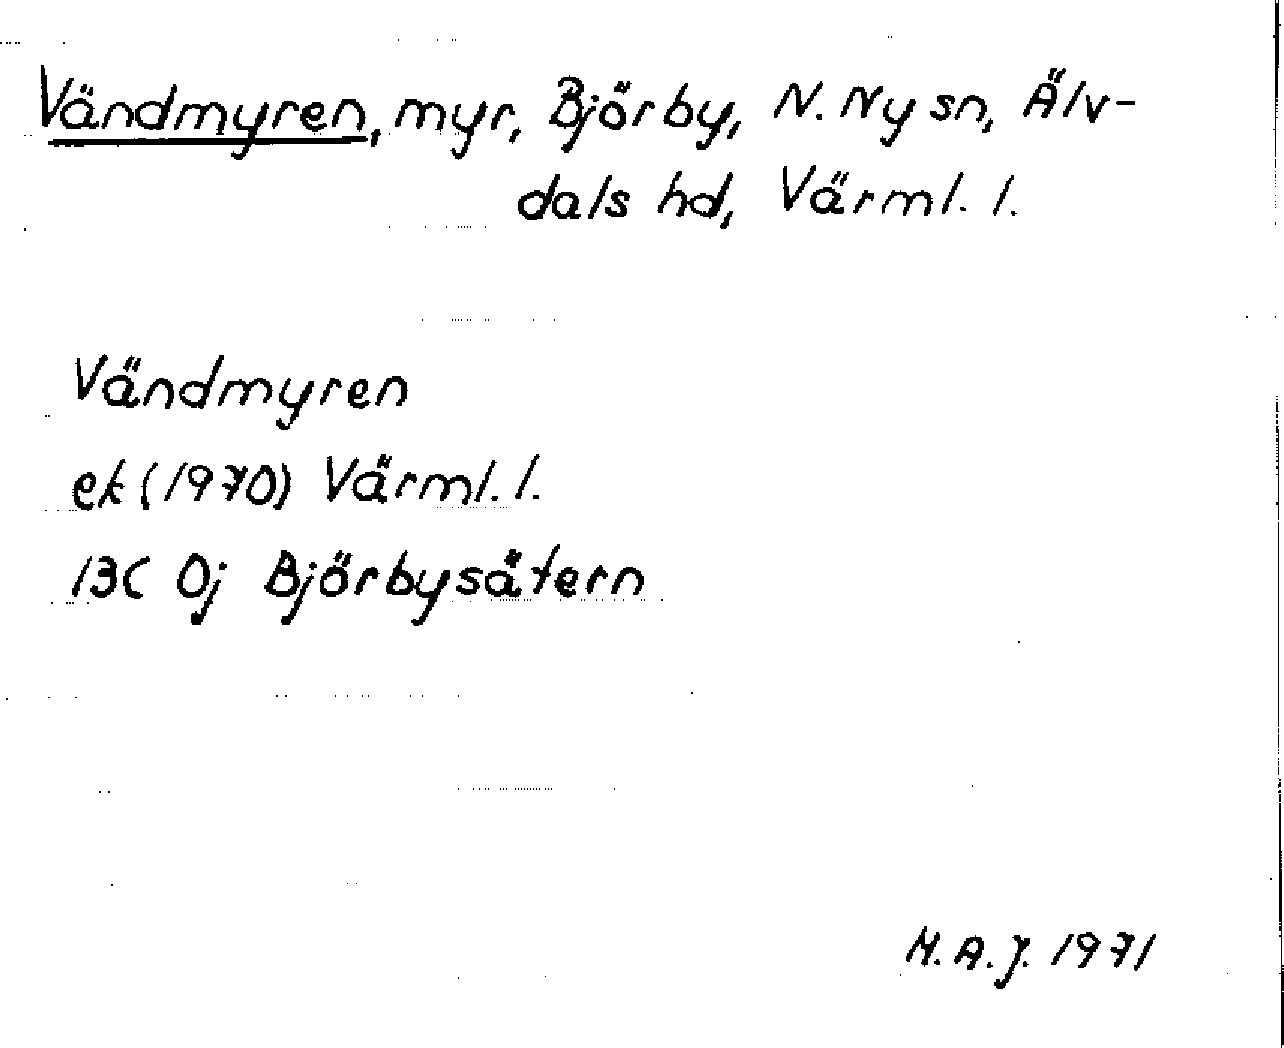 Vändmyren, myr, Björby, N. Ny sn, Älv-
dals hd, Värml. l.
Vändmyren
ek (1970) Värml. l.
13C 0j Björbysätern
M. A. J. 1971